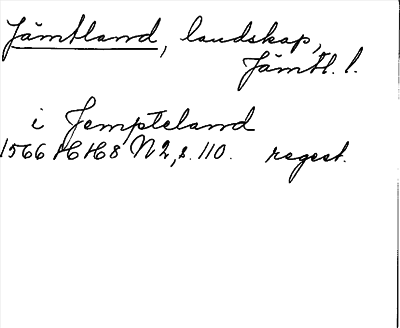 Jämtland, landskap,
Jämtl. l.
i Jempteland
1566 HH8 N2, s. 110. regest.